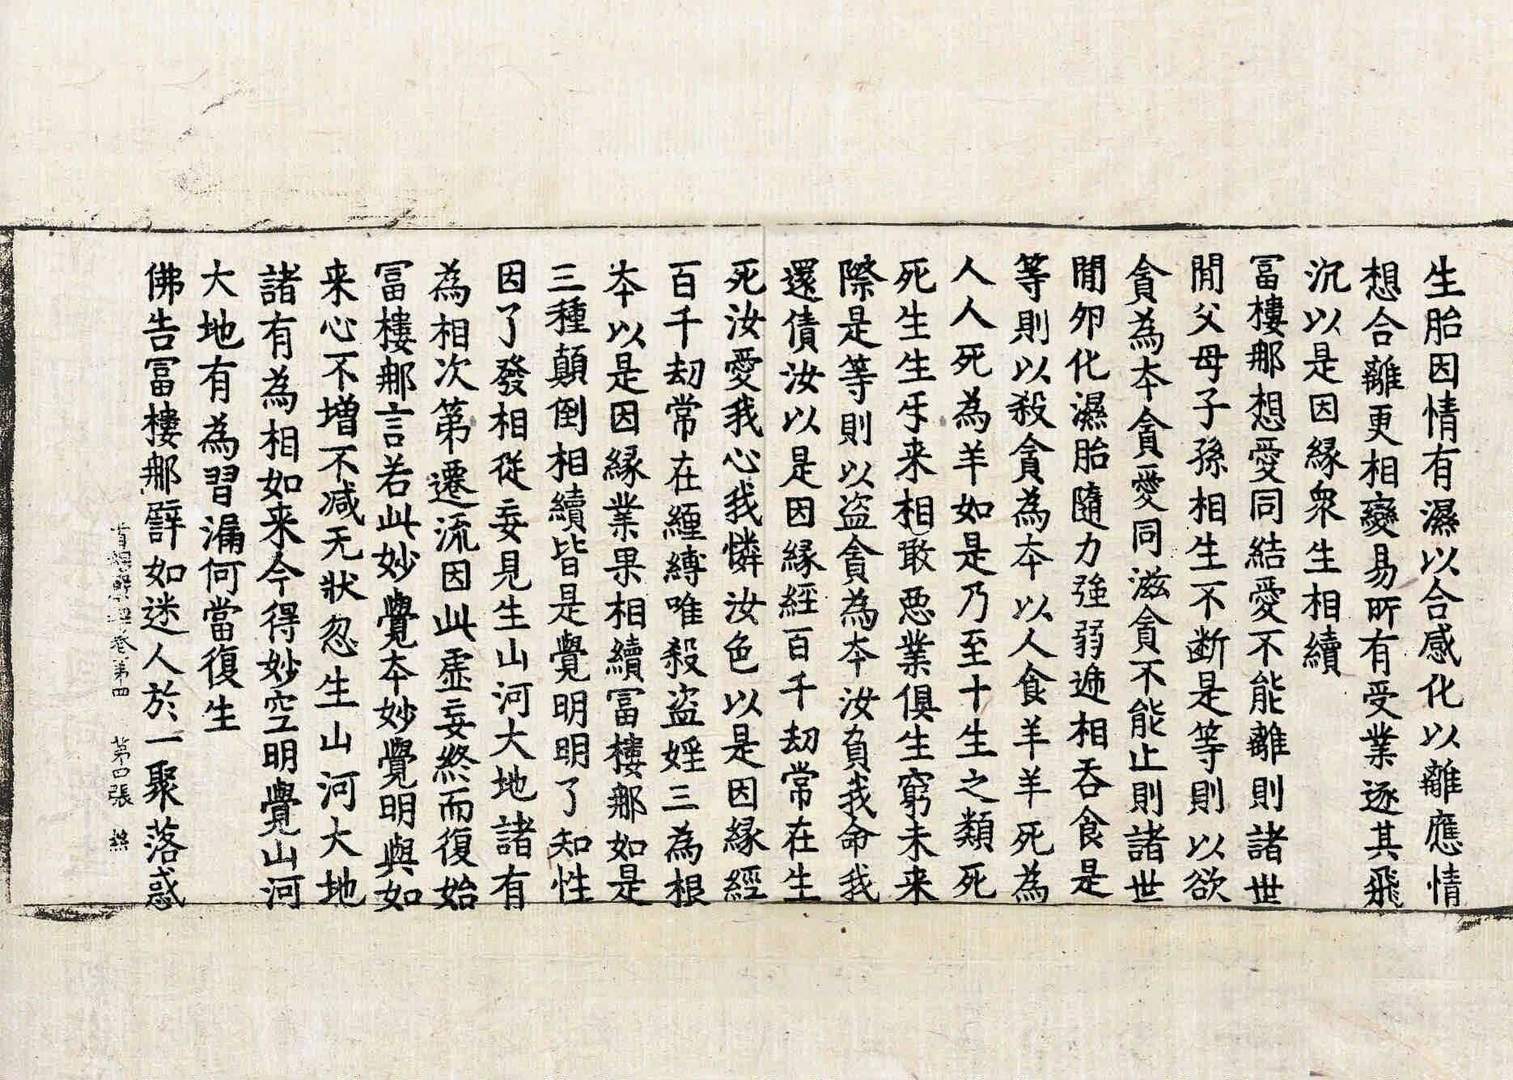 生胎因情有濕以合感化以離應情
想合離更相變易所有受業逐其飛
沉以是因緣衆生相續
冨樓那想愛同結愛不能離則諸世
閒父母子孫相生不断是等則以欲
貪為本貪愛同滋貪不能止則諸世
閒卵化濕胎隨力強弱遞相吞食是
等則以殺貪為本以人食羊羊死為
人人死為羊如是乃至十生之類死
死生生互来相敢惡業俱生窮未来
際是等則以盜貪為本汝負我命我
還債汝以是因緣經百千劫常在生
死汝愛我心我憐汝色以是因緣經
百千劫常在纏縛唯殺盜婬三為根
本以是因緣業果相續冨樓那如是
三種顛倒相續皆是覺明明了知性
因了發相從妄見生山河大地諸有
為相次第遷流因此虛妄終而復始
冨樓那言若此妙覺本妙覺明與如
来心不增不减无狀忽生山河大地
諸有為相如来今得妙空明覺山河
大地有為習漏何當復生
佛告冨樓那譬如迷人於一聚落惑
首楞嚴經卷第四 第四張